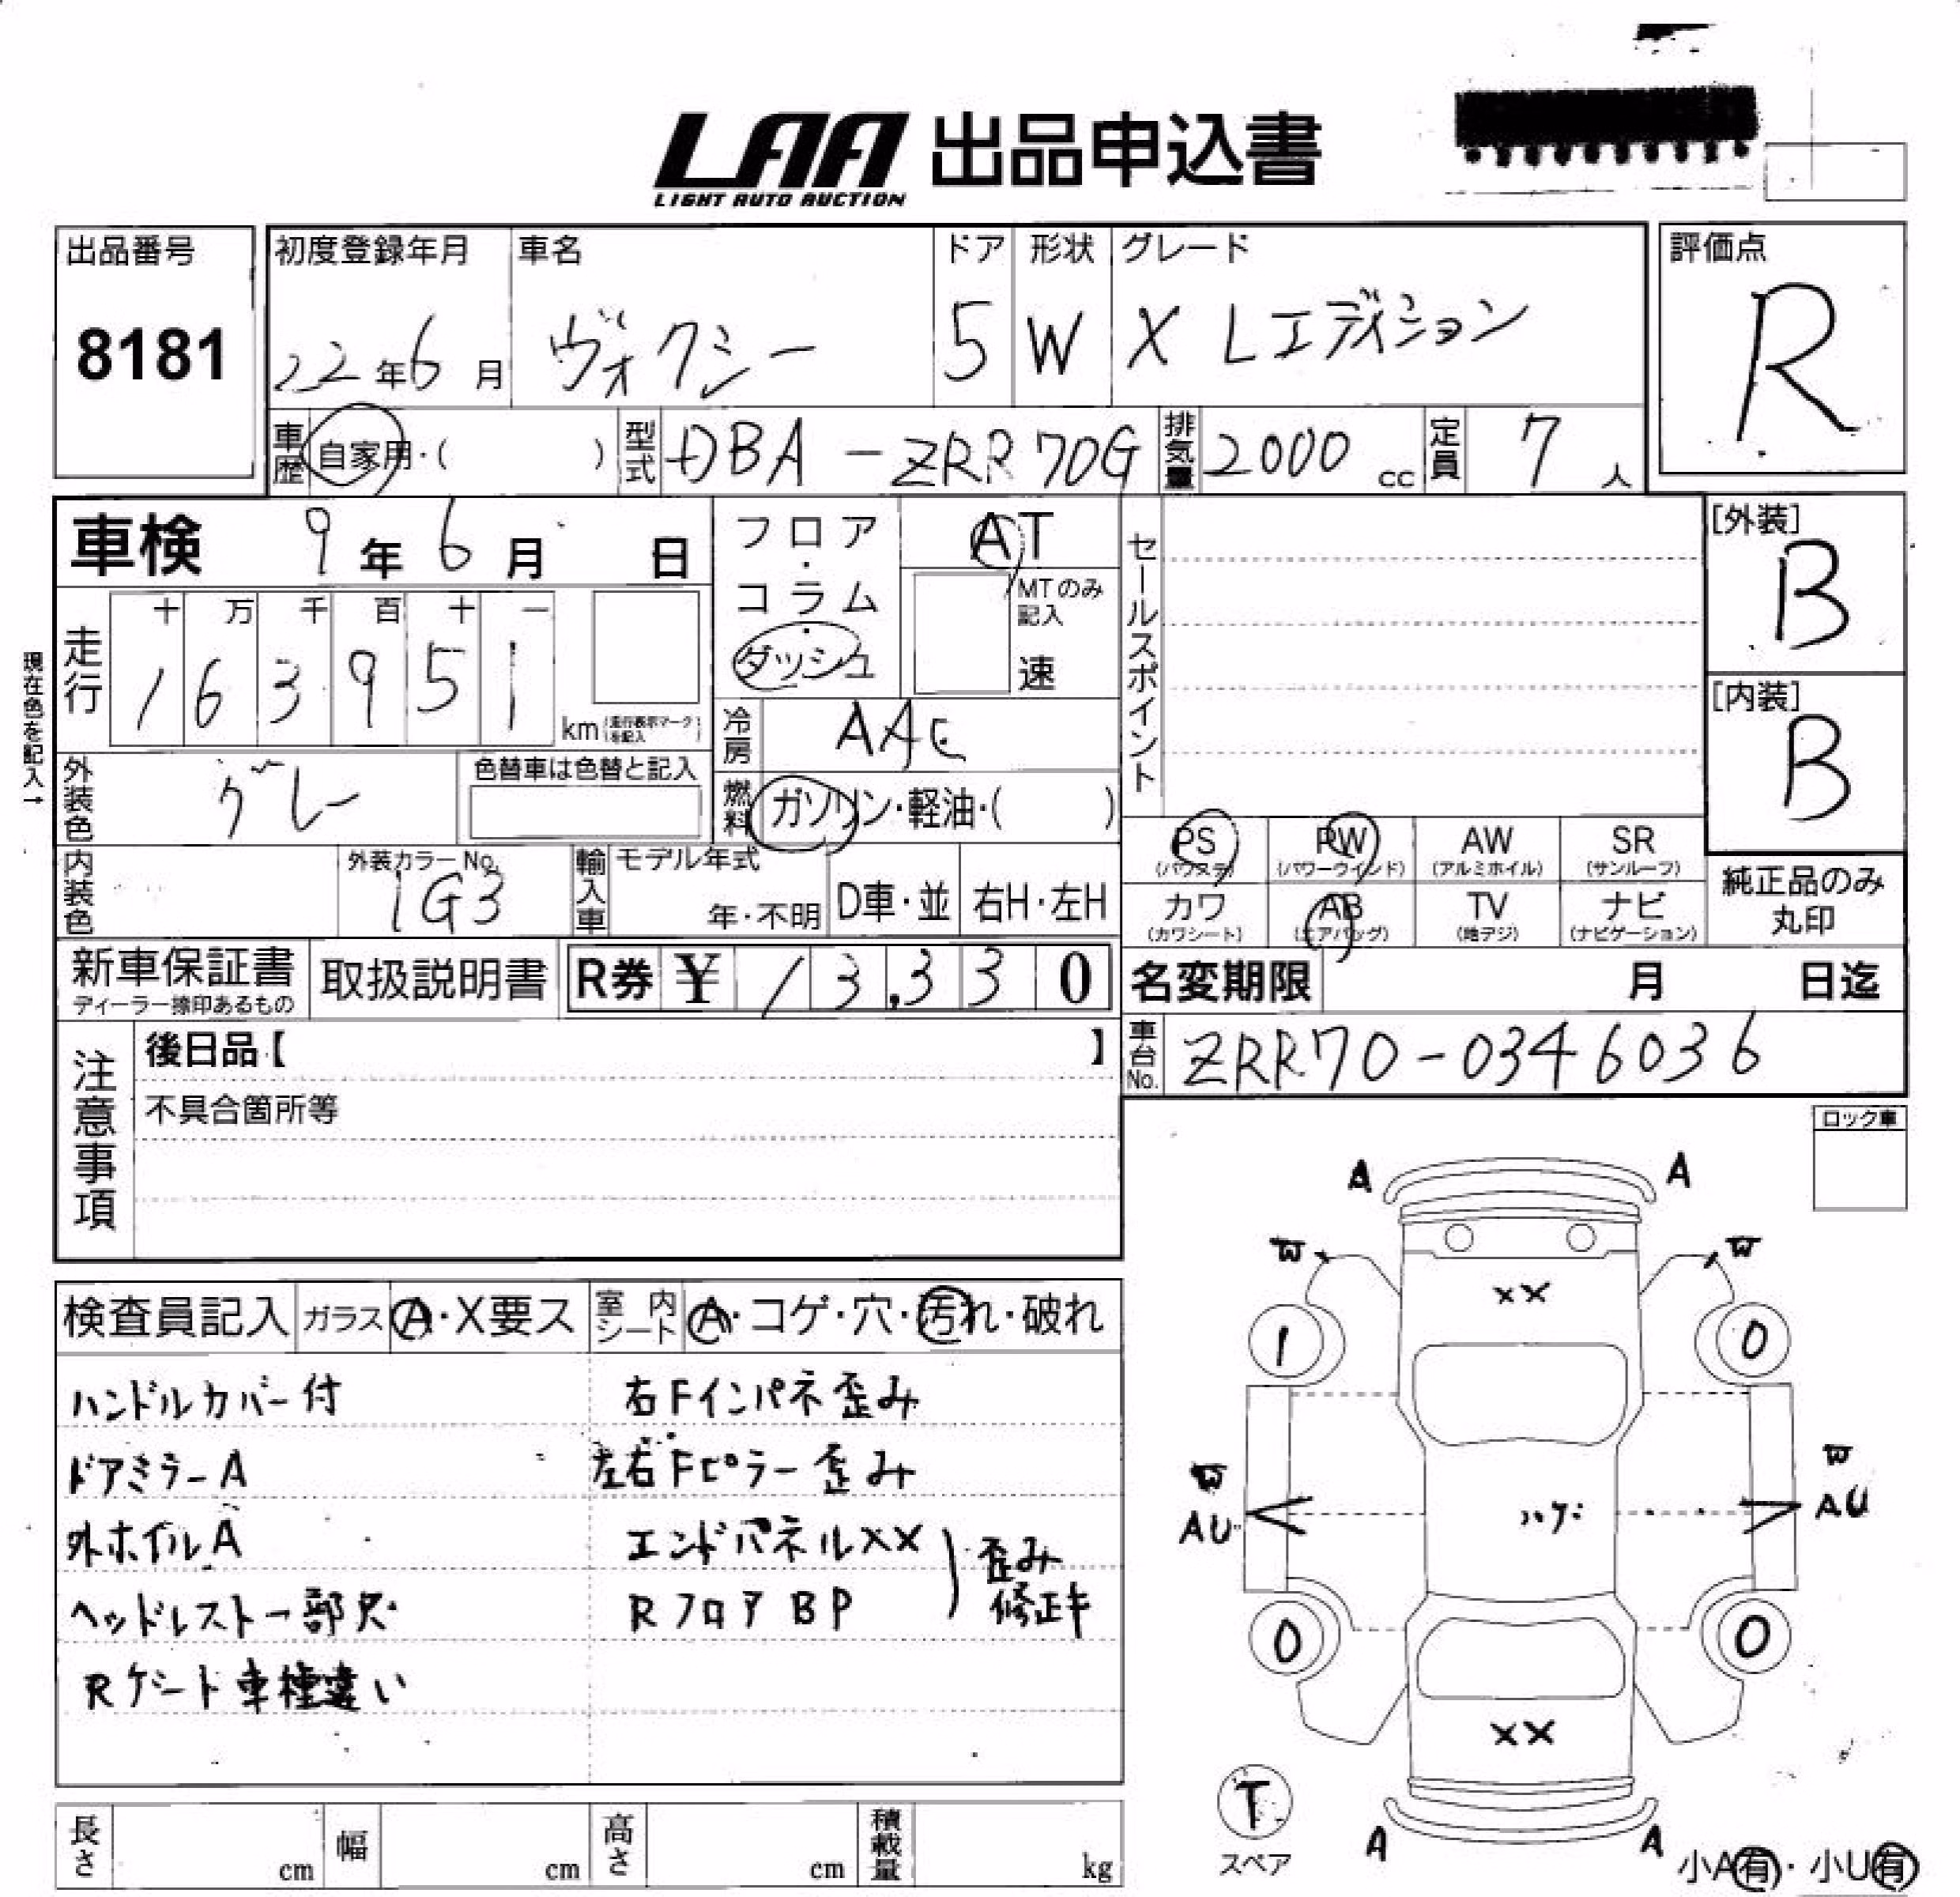 LAA 出品申込書
LIGHT AUTO AUCTION
出品番号
8181
初度登録年月
22年6月
車名
ヴォクシー
ドア
5
形状
W
グレード
X Lエディション
評価点
R
車歴 自家用・( )
型式 DBA-ZRR70G
排気量 2000 cc
定員 7人
車検 9年6月 日
フロア・コラム・ダッシュ
AT
MTのみ記入
速
セールスポイント
[外装]
B
[内装]
B
現在色を記入→
走行
十 万 千 百 十 一
1 6 3 9 5 1
km (走行表示マークを記入)
冷房 AAC
外装色 グレー
色替車は色替と記入
燃料 ガソリン・軽油・( )
PS (パワステ)
PW (パワーウインド)
AW (アルミホイル)
SR (サンルーフ)
カワ (カワシート)
AB (エアバッグ)
TV (地デジ)
ナビ (ナビゲーション)
純正品のみ丸印
内装色
外装カラーNo.
1G3
輸入車
モデル年式
年・不明
D車・並
右H・左H
新車保証書
ディーラー捺印あるもの
取扱説明書
R券 ¥ 13,330
名変期限 月 日迄
車台No. ZRR70-0346036
注意事項
後日品【 】
不具合箇所等
ロック車
検査員記入
ガラス A・X要ス
室内シート A・コゲ・穴・汚れ・破れ
ハンドルカバー付
右Fインパネ歪み
ドアミラーA
左右Fピラー歪み
外ホイルA
エンドパネルXX
ヘッドレスト一部欠
RフロアBP
歪み
修正キ
Rゲート車種違い
A A
W W
XX
1 0
W W
AU AU
ハゲ
0 0
XX
T
スペア
A A
小A有・小U有
長さ cm
幅 cm
高さ cm
積載量 kg